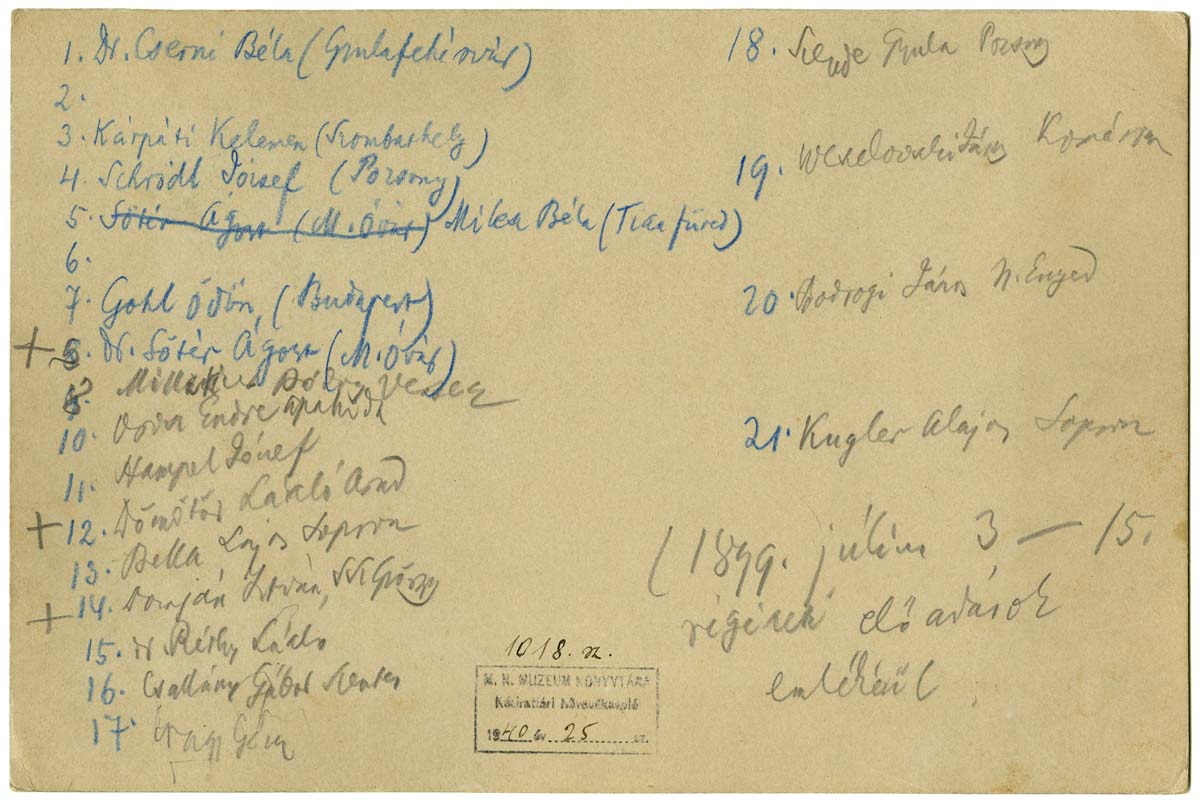 1. Dr. Cserni Béla (Gyulafehérvár)
2.
3. Kárpáti Kelemen (Szombathely)
4. Schrödl József (Pozsony)
5. Sőtér Ágost (M. Óvár) Milesz Béla (Tiszafüred)
6.
7. Gohl Ödön, (Budapest)
+ 8. Dr. Sőtér Ágost (M. Óvár)
9.
10. Orosz Endre Apahida
11. Hampel József
+ 12. Dömötör László Arad
13. Bella Lajos Sopron
+ 14. Domján István,
15. dr Réthy László
16. Csallány Gábor Szentes
17. Nagy Géza
18. Gyula Pozsony
19. János Komárom
20. Bodrogi János N. Enyed
21. Kugler Alajos Sopron
(1899. július 3 — 15.
régiségi előadások
emlékéül
1018. sz.
M. N. MUZEUM KÖNYVTÁRA
Kézirattári Növedéknapló
1940 év 25 sz.